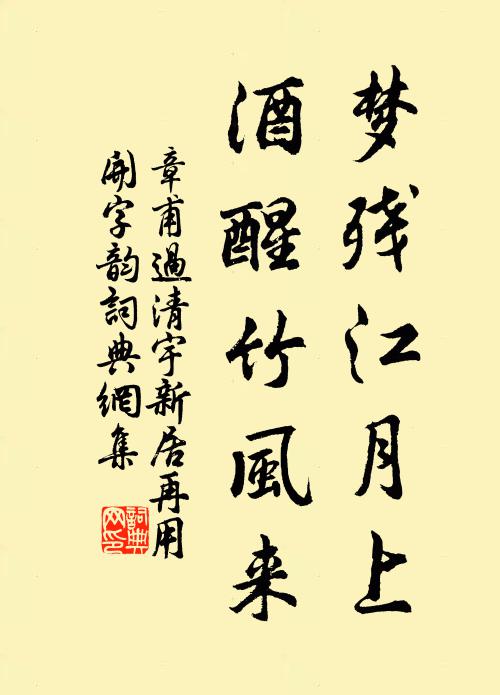 梦残江月上
酒醒竹風来
章甫過清宇新居再用
開字韵詞典網集
詞典
网印